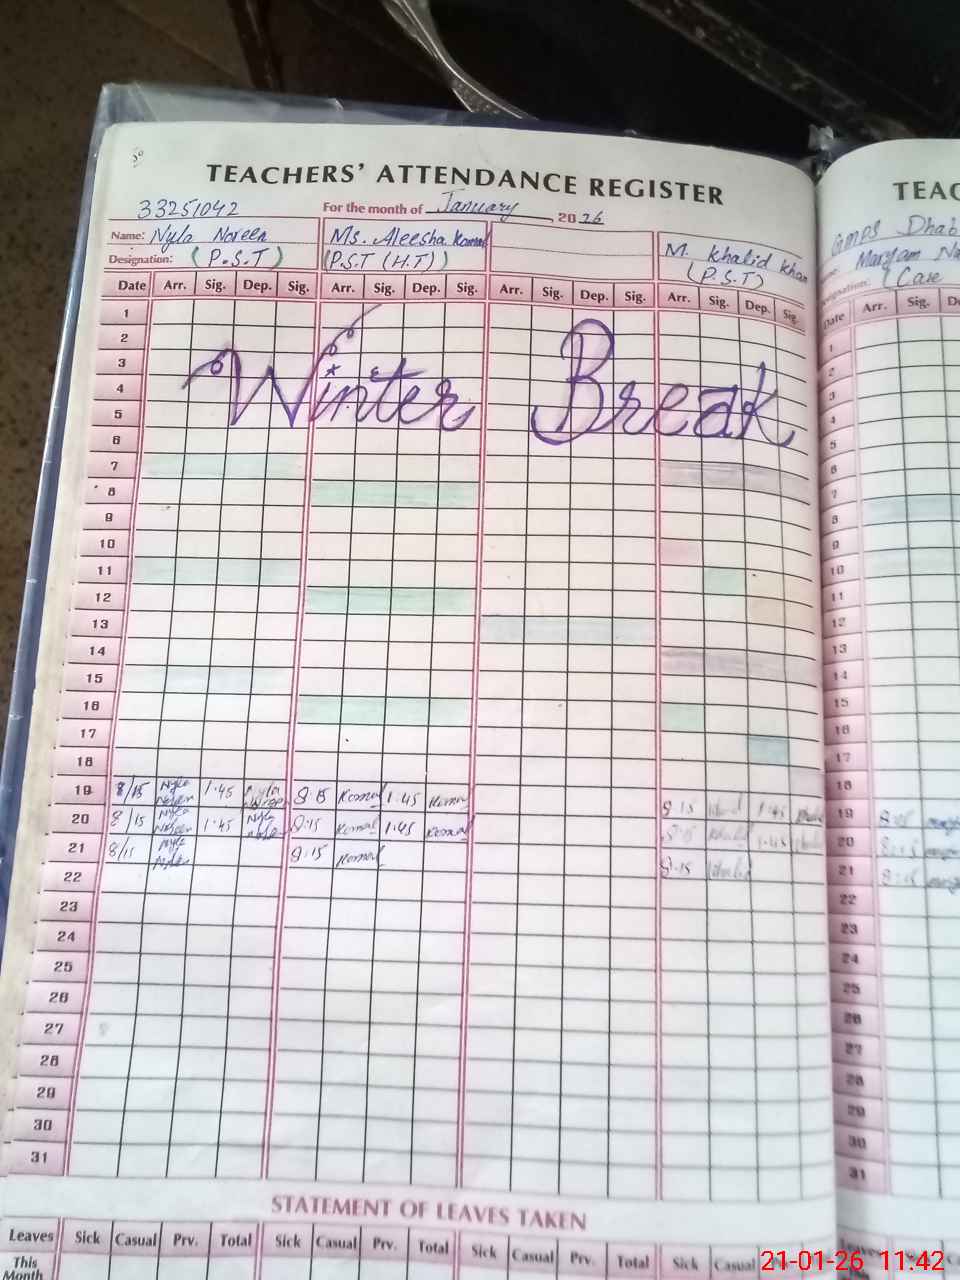 TEACHERS' ATTENDANCE REGISTER
33251042 For the month of January, 2026
Name: Nyla Noreen Ms. Aleesha Komal M. Khalid Khan
Designation: (P.S.T) (P.S.T (H.T)) (P.S.T)
Date Arr. Sig. Dep. Sig. Arr. Sig. Dep. Sig. Arr. Sig. Dep. Sig. Arr. Sig. Dep. Sig.
1
2
3
4
Winter Break
5
6
7
8
9
10
11
12
13
14
15
16
17
18
19 8/15 Nyla Noreen 1.45 Nyla Noreen 8.15 Komal 1.45 Komal 8.15 Khalid 1.45 Khalid
20 8/15 Nyla Noreen 1.45 Nyla 8.15 Komal 1.45 Komal 8.15 Khalid 1.45 Khalid
21 8/15 Nyla 8.15 Komal 8.15 Khalid
22
23
24
25
26
27
28
29
30
31
STATEMENT OF LEAVES TAKEN
Leaves Sick Casual Prv. Total Sick Casual Prv. Total Sick Casual Prv. Total Sick Casual
This Month
TEAC
Maryam
Date Arr. Sig.
1
2
3
4
5
6
7
8
9
10
11
12
13
14
15
16
17
18
19
20
21
22
23
24
25
26
27
28
29
30
31
21-01-26 11:42